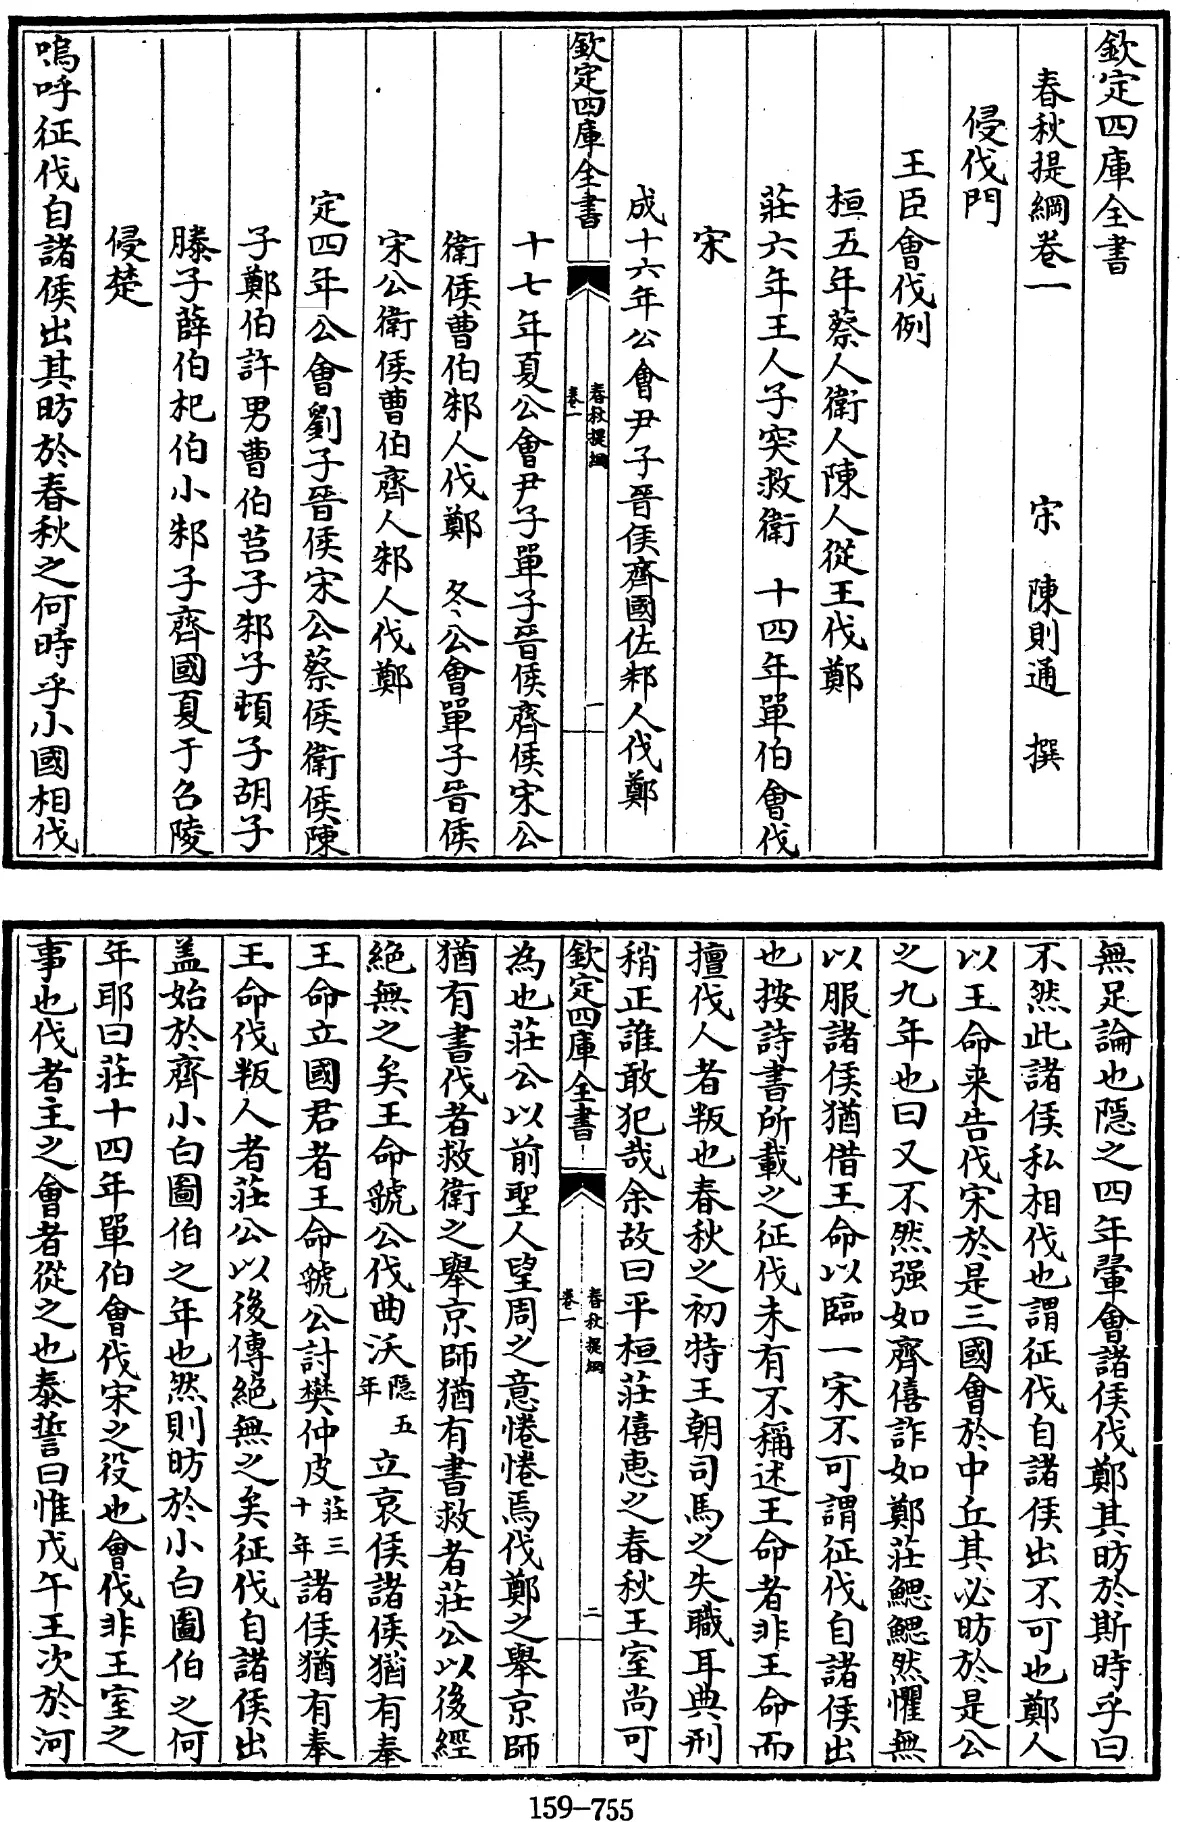 欽定四庫全書
春秋提綱卷一 宋 陳則通 撰
侵伐門
王臣會伐例
桓五年蔡人衛人陳人從王伐鄭
莊六年王人子突救衛 十四年單伯會伐
宋
成十六年公會尹子晉侯齊國佐邾人伐鄭
欽定四庫全書 春秋提綱 卷一 一
十七年夏公會尹子單子晉侯齊侯宋公
衛侯曹伯邾人伐鄭 冬公會單子晉侯
宋公衛侯曹伯齊人邾人伐鄭
定四年公會劉子晉侯宋公蔡侯衛侯陳
子鄭伯許男曹伯莒子邾子頓子胡子
滕子薛伯杞伯小邾子齊國夏于召陵
侵楚
嗚呼征伐自諸侯出其昉於春秋之何時乎小國相伐
無足論也隠之四年翬會諸侯伐鄭其昉於斯時乎曰
不然此諸侯私相伐也謂征伐自諸侯出不可也鄭人
以王命来告伐宋於是三國會於中丘其必昉於是公
之九年也曰又不然强如齊僖詐如鄭莊鰓鰓然懼無
以服諸侯猶借王命以臨一宋不可謂征伐自諸侯出
也按詩書所載之征伐未有不稱述王命者非王命而
擅伐人者叛也春秋之初特王朝司馬之失職耳典刑
稍正誰敢犯哉余故曰平桓莊僖惠之春秋王室尚可
欽定四庫全書 春秋提綱 卷一 二
為也莊公以前聖人望周之意惓惓焉伐鄭之舉京師
猶有書伐者救衛之舉京師猶有書救者莊公以後經
絕無之矣王命虢公伐曲沃隠五年立哀侯諸侯猶有奉
王命立國君者王命虢公討樊仲皮莊三十年諸侯猶有奉
王命伐叛人者莊公以後傳絕無之矣征伐自諸侯出
盖始於齊小白圖伯之年也然則昉於小白圖伯之何
年耶曰莊十四年單伯會伐宋之役也會伐非王室之
事也伐者主之會者從之也泰誓曰惟戊午王次於河
159-755